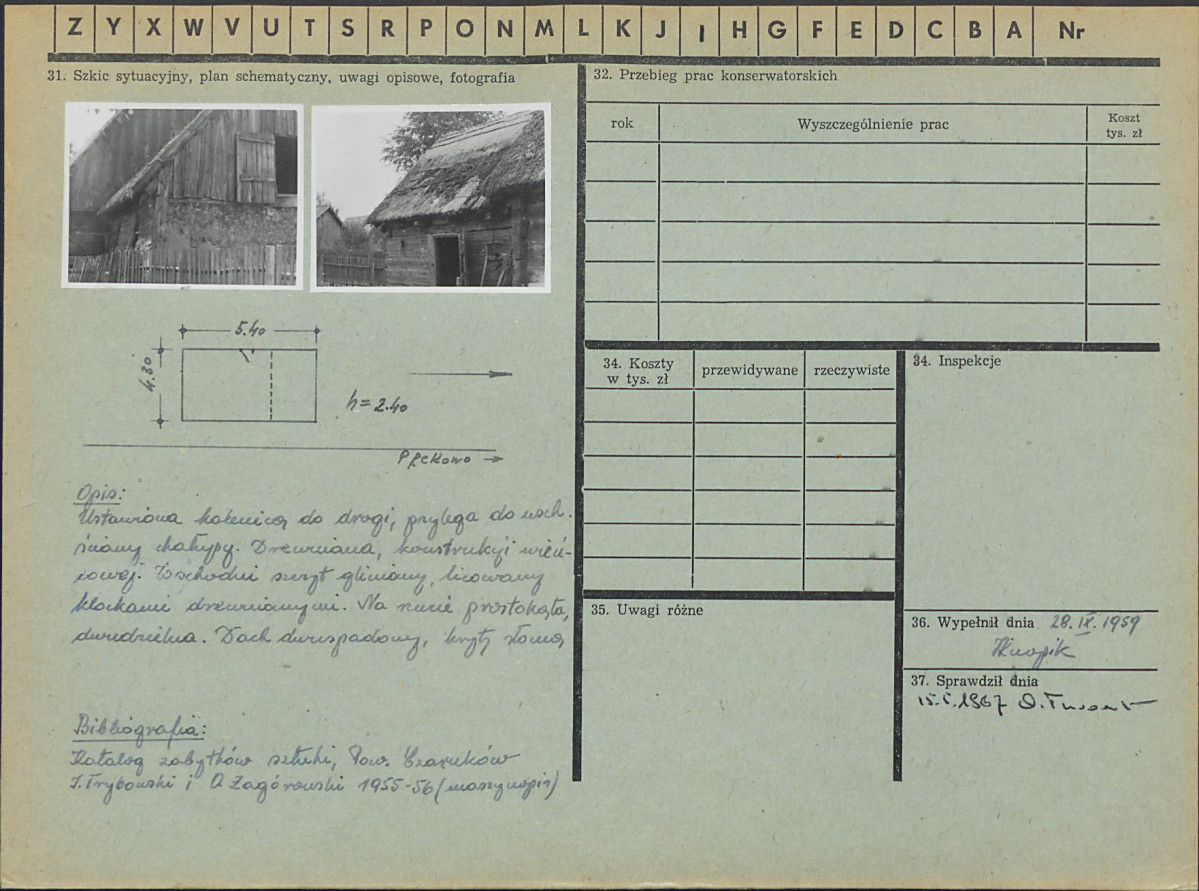 Z Y X W V U T S R P O N M L K J I H G F E D C B A Nr
31. Szkic sytuacyjny, plan schematyczny, uwagi opisowe, fotografia
5.40
4.30
h = 2.40
Pęckowo →
Opis:
Ustawiona kalenicą do drogi, przylega do wsch.
ściany chałupy. Drewniana, konstrukcji wień-
cowej. Wschodni szczyt gliniany, licowany
klockami drewnianymi. Na rzucie prostokąta,
dwudzielna. Dach dwuspadowy, kryty słomą
Bibliografia:
Katalog zabytków sztuki, Pow. Czarnków
J. Frybowski i O Zagórowski 1955-56 (maszynopis)
32. Przebieg prac konserwatorskich
rok
Wyszczególnienie prac
Koszt
tys. zł
34. Koszty
w tys. zł
przewidywane
rzeczywiste
34. Inspekcje
35. Uwagi różne
36. Wypełnił dnia 28. IX. 1959
37. Sprawdził dnia